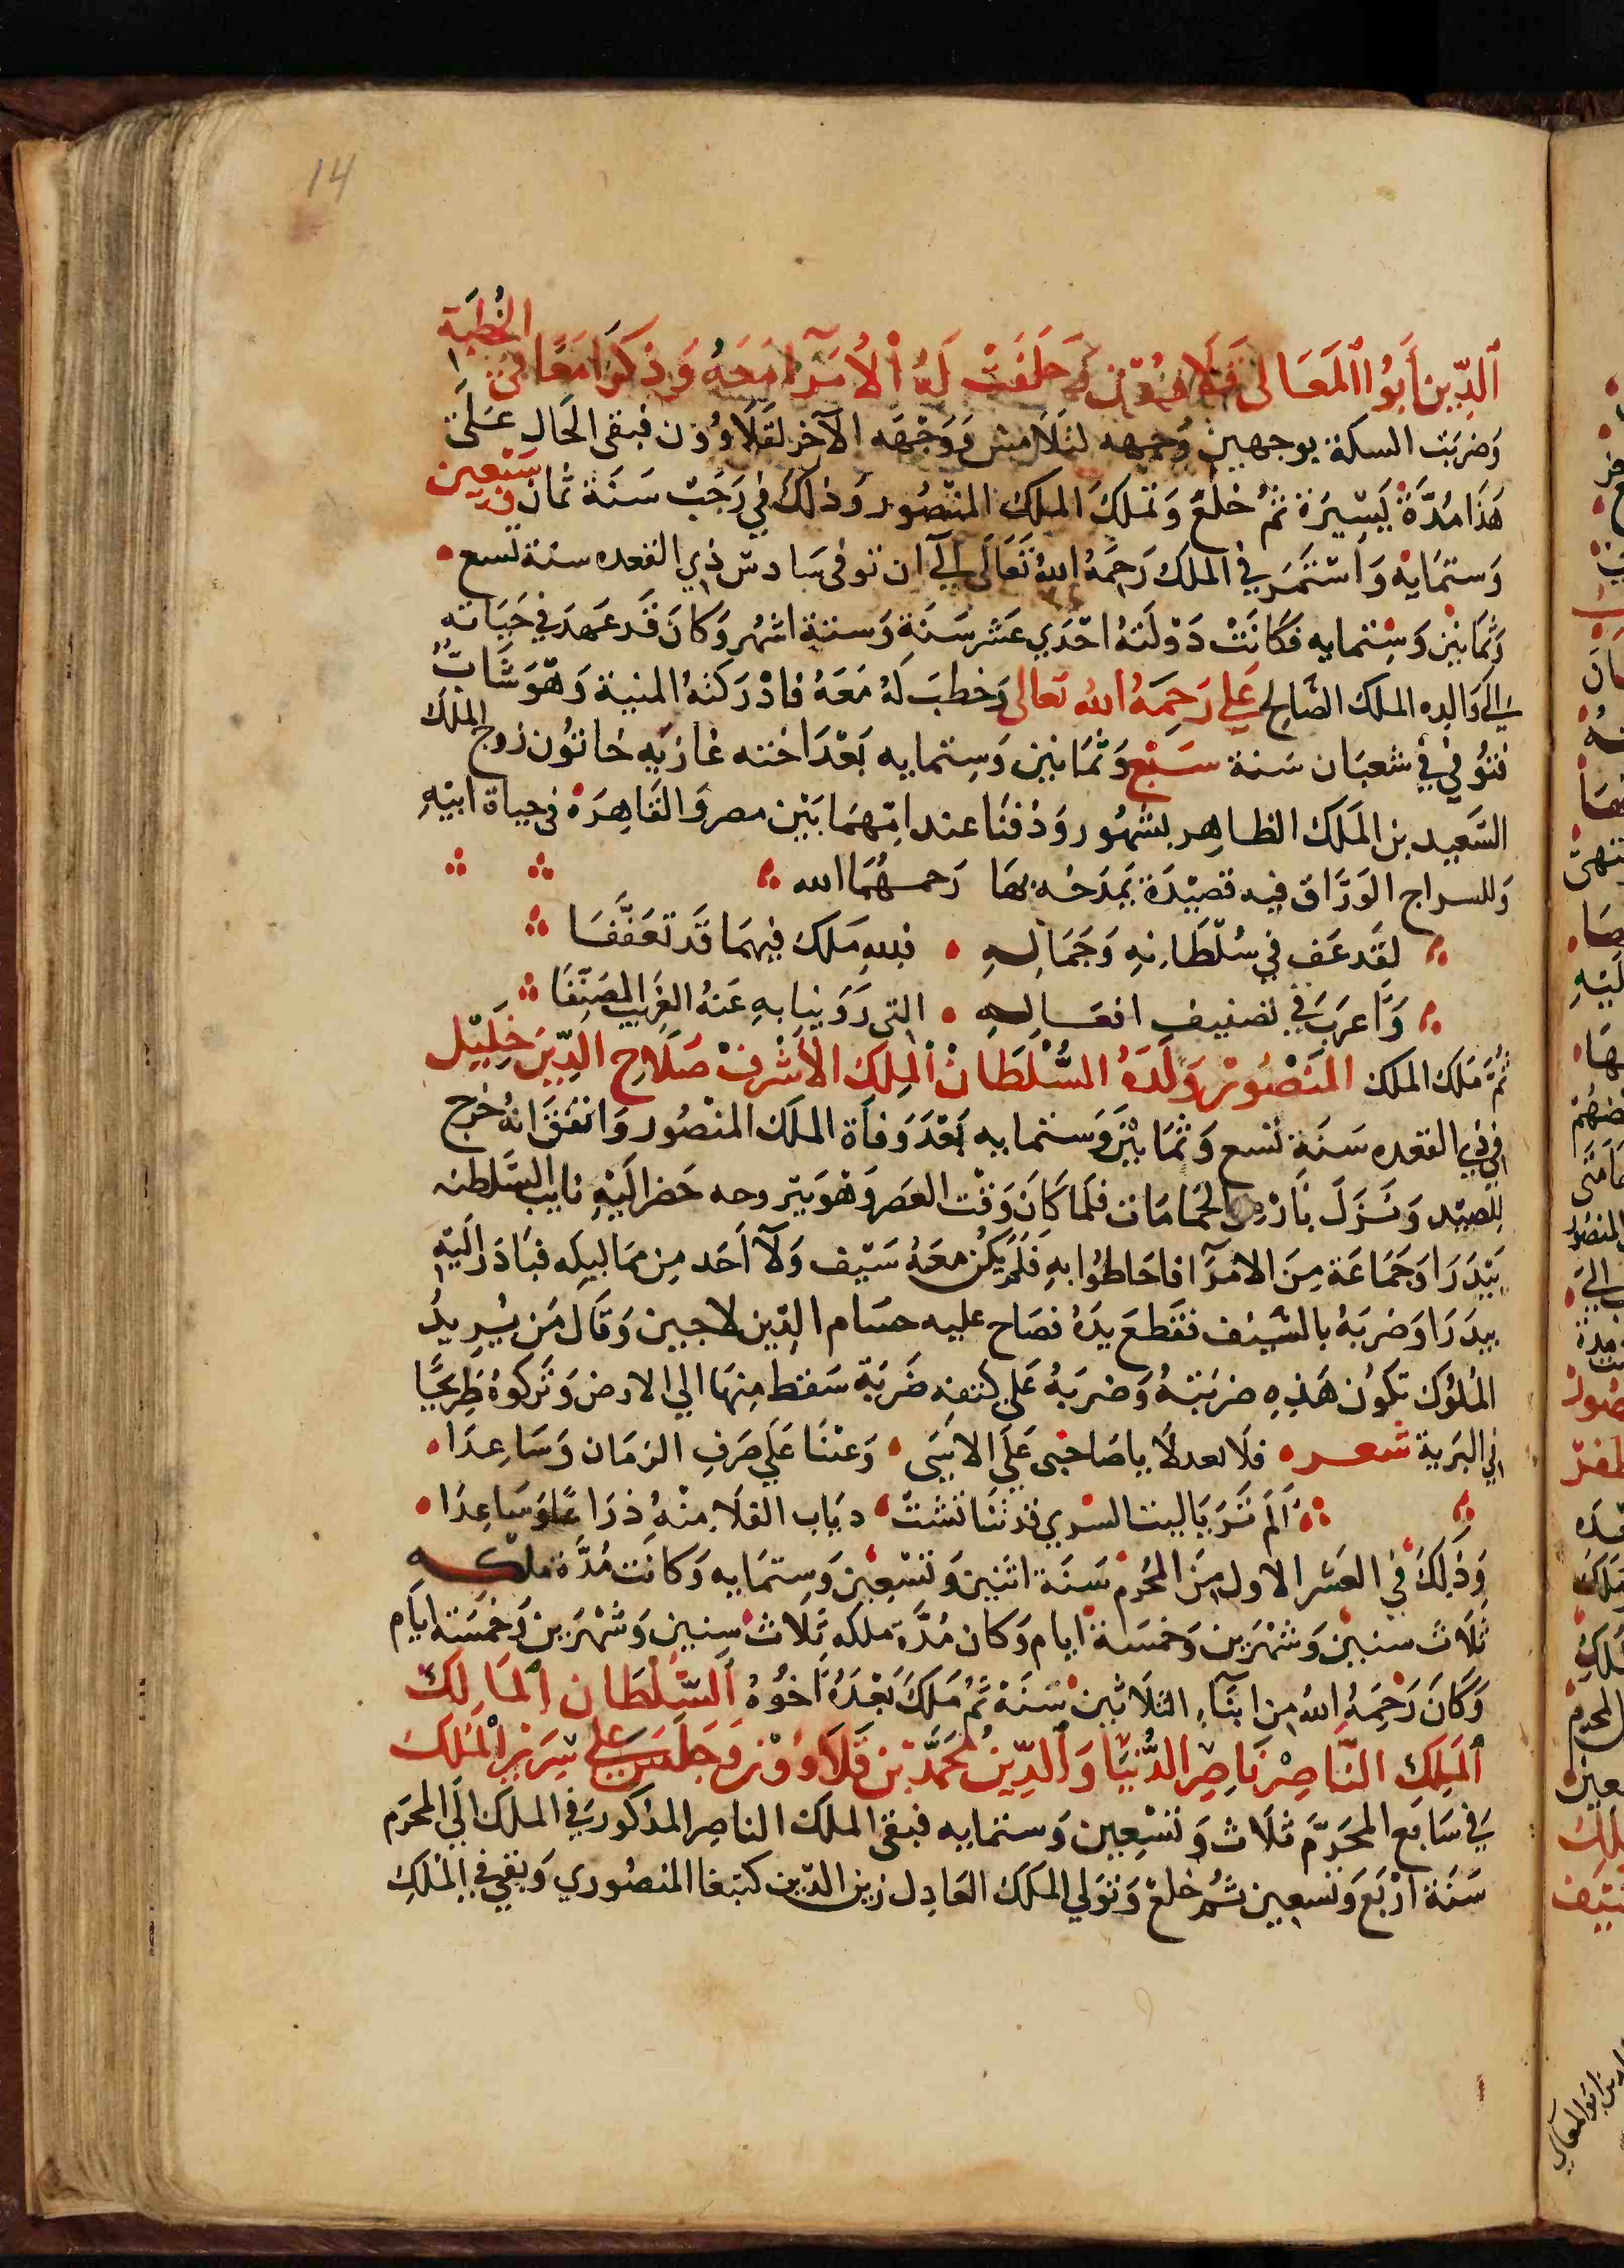 14
الدِّين أَبُوا المَعَالى قَلَاوُوْن وَحَلَفَتْ لَهُ الْأُمَرَآ مَعَهُ وَذكَرَا مَعًا في الخُطبَة
وَضربَت السكة بوجهين وَجهه لشلَامش وَوَجْهَه الآخر لقَلَاوُون فبقى الحَال عَلَى
هَذَا مُدَّةً يَسِيرَة ثمُ خلعَ وَتَملكَ الملك المنصُور وَذلكَ في رَجَبْ سَنَة ثمان وَسَبْعين
وَستمَايه وَاسْتَمَر في الملك رَحِمَهُ اللهُ تَعَالَى اليَ ان توفى سَادس ذي القعده سنة تسع
وَثمَانين وَسِتمايه فكَانَتْ دَوْلَتهُ احْدَي عَشر سَنَة وَستة اشهُر وَكانَ قَد عَهدَ في حَيَاته
الي وَالده الملك الصَّالح علي رَحِمَهُ الله تعالى وَخطبَ لَهُ مَعَهُ فادْرَكتهُ المنية وَهوَ شَابٌ
فتوُفيَ في شعبَان سَنة سَبْع وَثمَانين وَستمايه بَعْدَ اخته غازيَه خاتوُن زوج الملك
السَّعيد بن المَلَك الظاهِر بشهُور وَدُفنَا عند امّهمَا بَيْن مصر وَالقَاهِرَة في حياة ابيْهِ
وَللسراج الوَرَّاق فيه قصيْدَة يَمدَحُه بهَا رَحمهُمَا الله
لقَد عَف في سُلطَانهِ وَجَمَالهِ • فلله مَلك فيهمَا قَد تعَفَّفَا
وَاَعرَبَ في تصنيف افعَالهِ • التي رَوَينا بهِ عَنهُ الغَريبَ المصَنَّفَا
ثُمَّ مَلك الملك المَنصُوْر وَلَدَهُ السُّلْطَانْ الْمَلِك الْاَشْرفْ صَلَاح الدِّيْن خَلِيْل
في ذي القعده سَنَة تسع وَثمَانيْن وَستمايه بَعْدَ وَفاة الملَك المنصُور وَاتفقَ انهُ خرج
للصيْد وَنَزَلَ بَارْض الحمَامَات فلمَا كَانَ وَقْت العَصر وَهوَ يتروحه حَضر اليْهِ نايب السَّلطنه
بَيْدَرَا وَجَمَاعَة مِنَ الامَرَآ فاحَاطُوا بهِ فَلَم يَكُن معَهُ سَيْف وَلَآ اَحَد مِن ممَاليكه فبَادَر اليْهِ
بيدَرَا وَضرَبَهُ بالسَّيْف فقَطعَ يدَهُ فصَاح عليه حسَام الدِّين لاجين وَقَال مَن يُرِيدُ
المُلوُك تكوُن هَذِهِ ضربَتهُ وَضربَهُ عَلى كتفه ضَرْبَة سَقط منهَا الي الارض وَترَكوُهُ طَريحًا
في البَرية شعر • فلَا تعدلَا ياصَاحبى عَلَي الابَيَ • وَعتبَا عَلَي صَرفِ الزمَان وَسَاعِدَا •
اَلَم تَر يَا ليث السري قد تنَاتشتْ • ديَاب الفلَا منْهُ ذرَاعًا وَسَاعِدَا •
وَذَلكَ في العَشر الاول مِنَ المحُرم سَنَة اثنين وَتسْعِين وَستمَايه وَكانَت مُدَّة ملكهِ
ثلَاث سنين وَشهْرين وَخمسَة ايام وَكان مُدَّة ملكه ثلَاث سِنين وَشهْرين وَخمسَة ايام
وَكَانَ رَحِمَهُ الله مِن ابنَآءِ الثلَاثين سَنَة ثم مَلَكَ بَعْدَهُ اَخُوْهُ السُّلْطَان المَالِك
المَلِكِ النَّاصِرْ نَاصِر الدُّنْيَا وَالدِّيْن مُحَمَّد بْن قَلَاوُوْن وَجَلَسَ عَلي سَرِيْر الْمُلك
في سَابع المحَرَّم ثلَاث وَتسْعِين وَستمايه فبقيَ الملك الناصِر المذكور في الملك اليَ المحَرم
سَنَة ارْبَع وَتسعين ثمُ خلعَ وَتوَلي الملك العَادِل زين الدِّين كتبغا المنصُوري وَبقي في المُلكِ